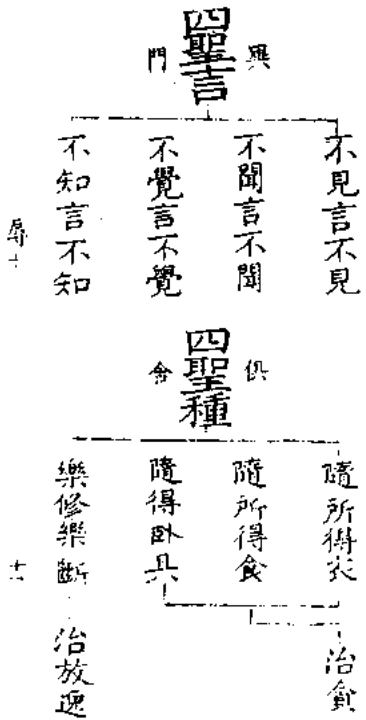 四聖言
興門
不見言不見
不聞言不聞
不覺言不覺
不知言不知
四聖種
俱舍
隨所得衣
隨所得食
隨得臥具
治貪
樂修樂斷
治放逸